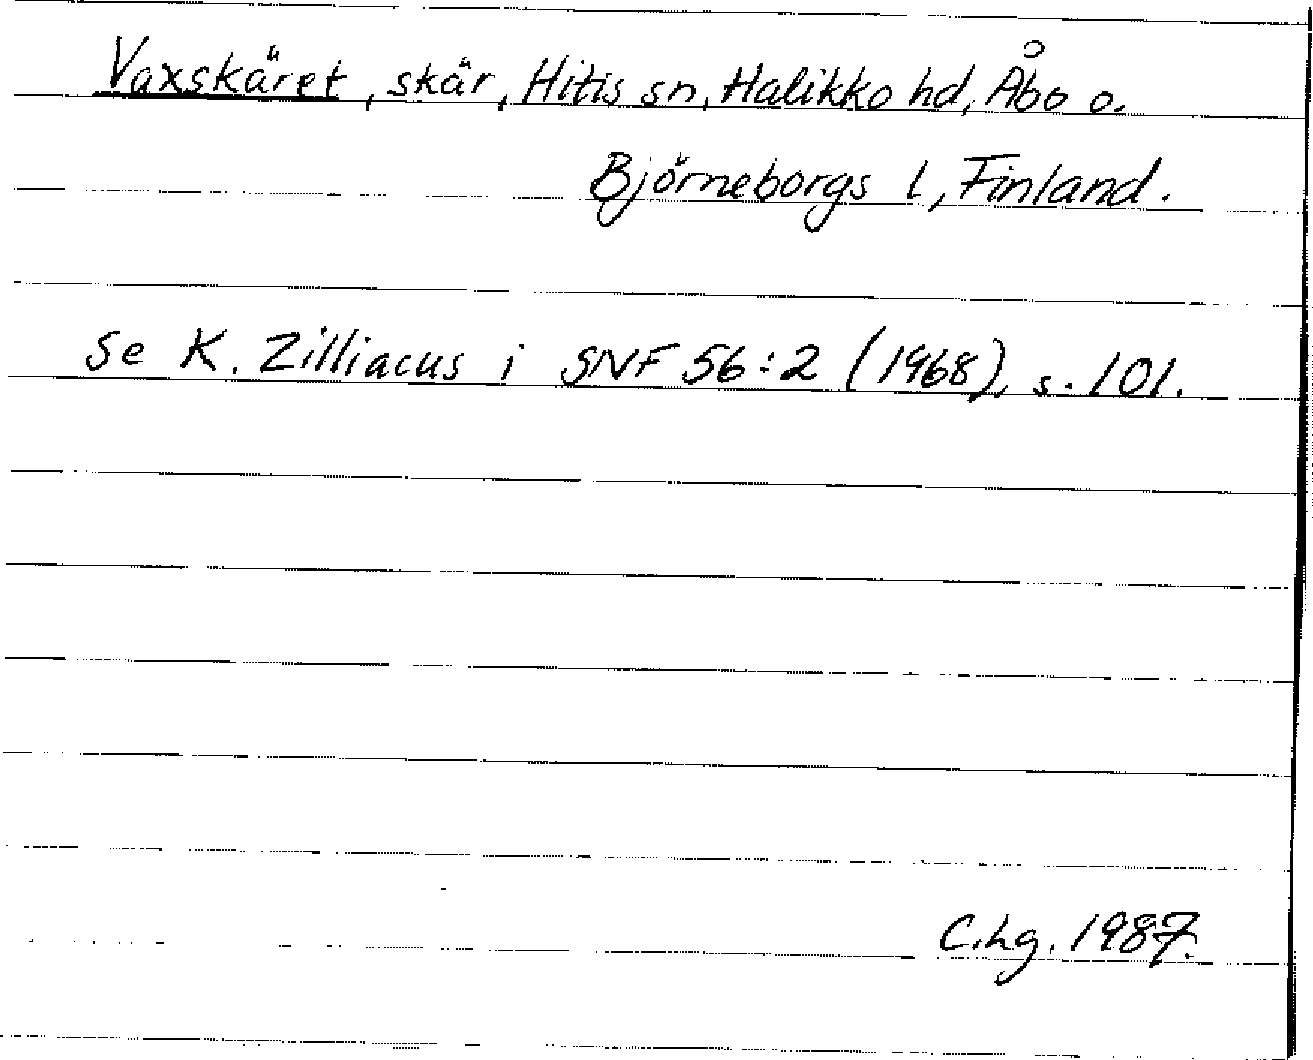 Vaxskäret, skär, Hitis sn, Halikko hd, Åbo o.
Björneborgs l, Finland.
Se K. Zilliacus i SNF 56:2 (1968), s. 101.
C.hg. 1987.